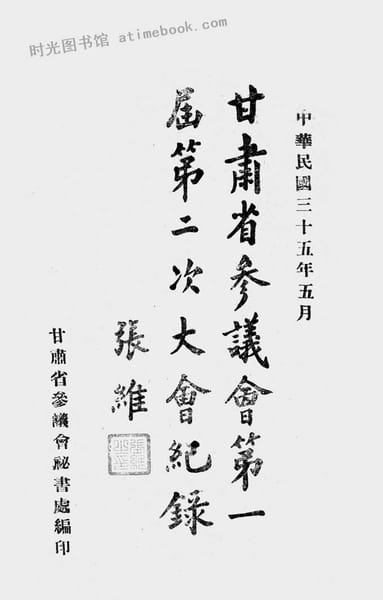 时光图书馆 atimebook.com
中華民國三十五年五月
甘肅省參議會第一
屆第二次大會紀錄
張維
甘肅省參議會祕書處編印